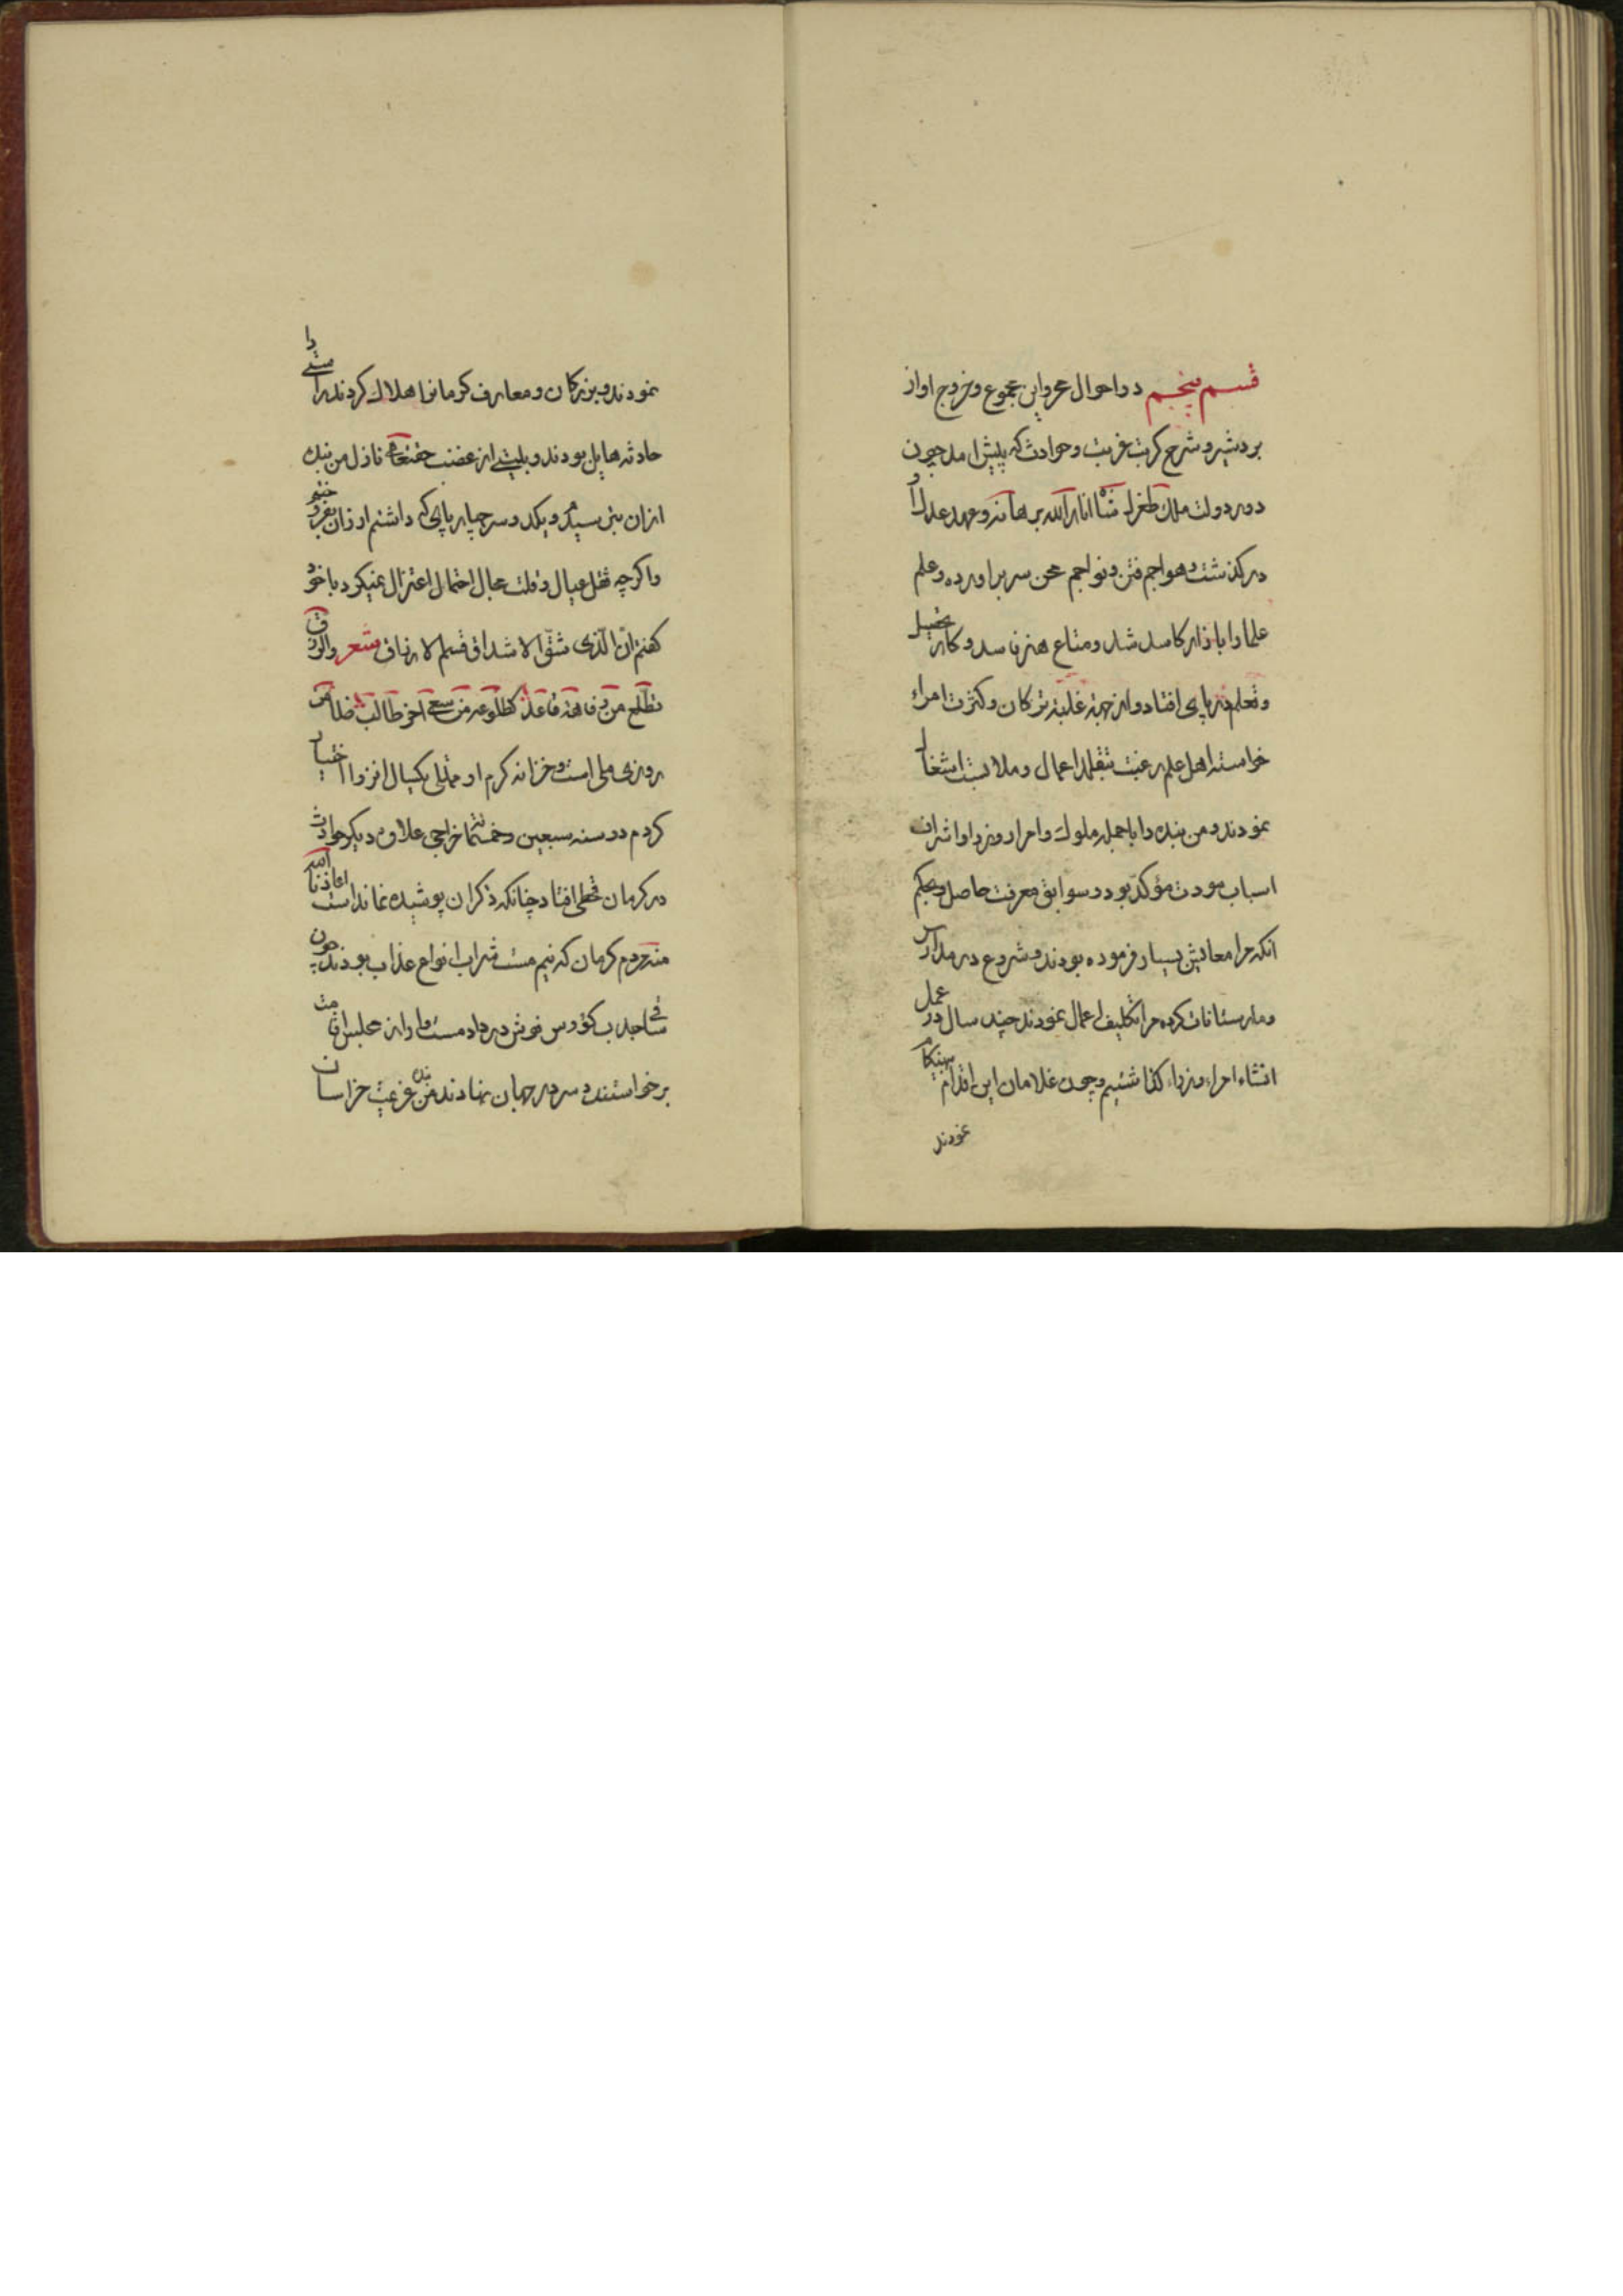 قسم پنجم در احوال محرر این مجموع و خروج او از
بردشیر و شرح کربت غربت و حوادث که پیش آمد چون
دور دولت ملک طغرلشاه انار الله برهانه و عهد عدل او
درگذشت و هواجم فتن و نواجم محن سر براورده و علم
علما را بازار کاسد شد و متاع هنر فاسد و کار تحصیل
و تعلم در پای افتاد و از جهة غلبه ترکان و کثرت امراء
خواسته اهل علم رغبت بتقلد اعمال و ملابست اشغال
نمودند و من بنده را با جمله ملوک و امرا و وزرا و اشراف
اسباب مودت مؤکد بود و سوابق معرفت حاصل و بحکم
انکه مرا معایش بسیار فرموده بودند و شروع در مدارس
و مارستانات کرده مرا تکلیف اعمال نمودند چند سال در عمل
انشاء امراء وزراء کذاشتیم و چون غلامان این اقدام بهنیکام
نمودند
نمودند و بزرکان و معارف کرمانرا هلاک کردند راستی را
حادثه هایل بودند و بلیتی از غضب حقتعالی نازل من بنده
ازان بترسیدم و یکدو سر چهارپای که داشتم ارزان بفروختم
و اکرچه ثقل عیال و قلت مجال احتمال اعتزال نمیکرد با خود
کفتم انّ الّذی شقّ الاشداق قسم الارزاق شعر والرزق
تطلع من رفاهة قاعد کطلوعه من سعی اخر طالب ضامن
روزی ملی است و خزانه کرم او ممتلی یکسال انزوا اختیار
کردم در سنه سبعین و خمسمائة خراجی علاوه دیکر حوادث
در کرمان قحطی افتاد چنانکه ذکر ان پوشیده نماند است اعاذنا الله
منه مردم کرمان که نیم مست شراب انواع عذاب بودند چون
ساقی جدب کؤوس خویش در داد مست وار از مجلس اقامت
برخواستند و سر در جهان نهادند من بنده عزیمت خراسان